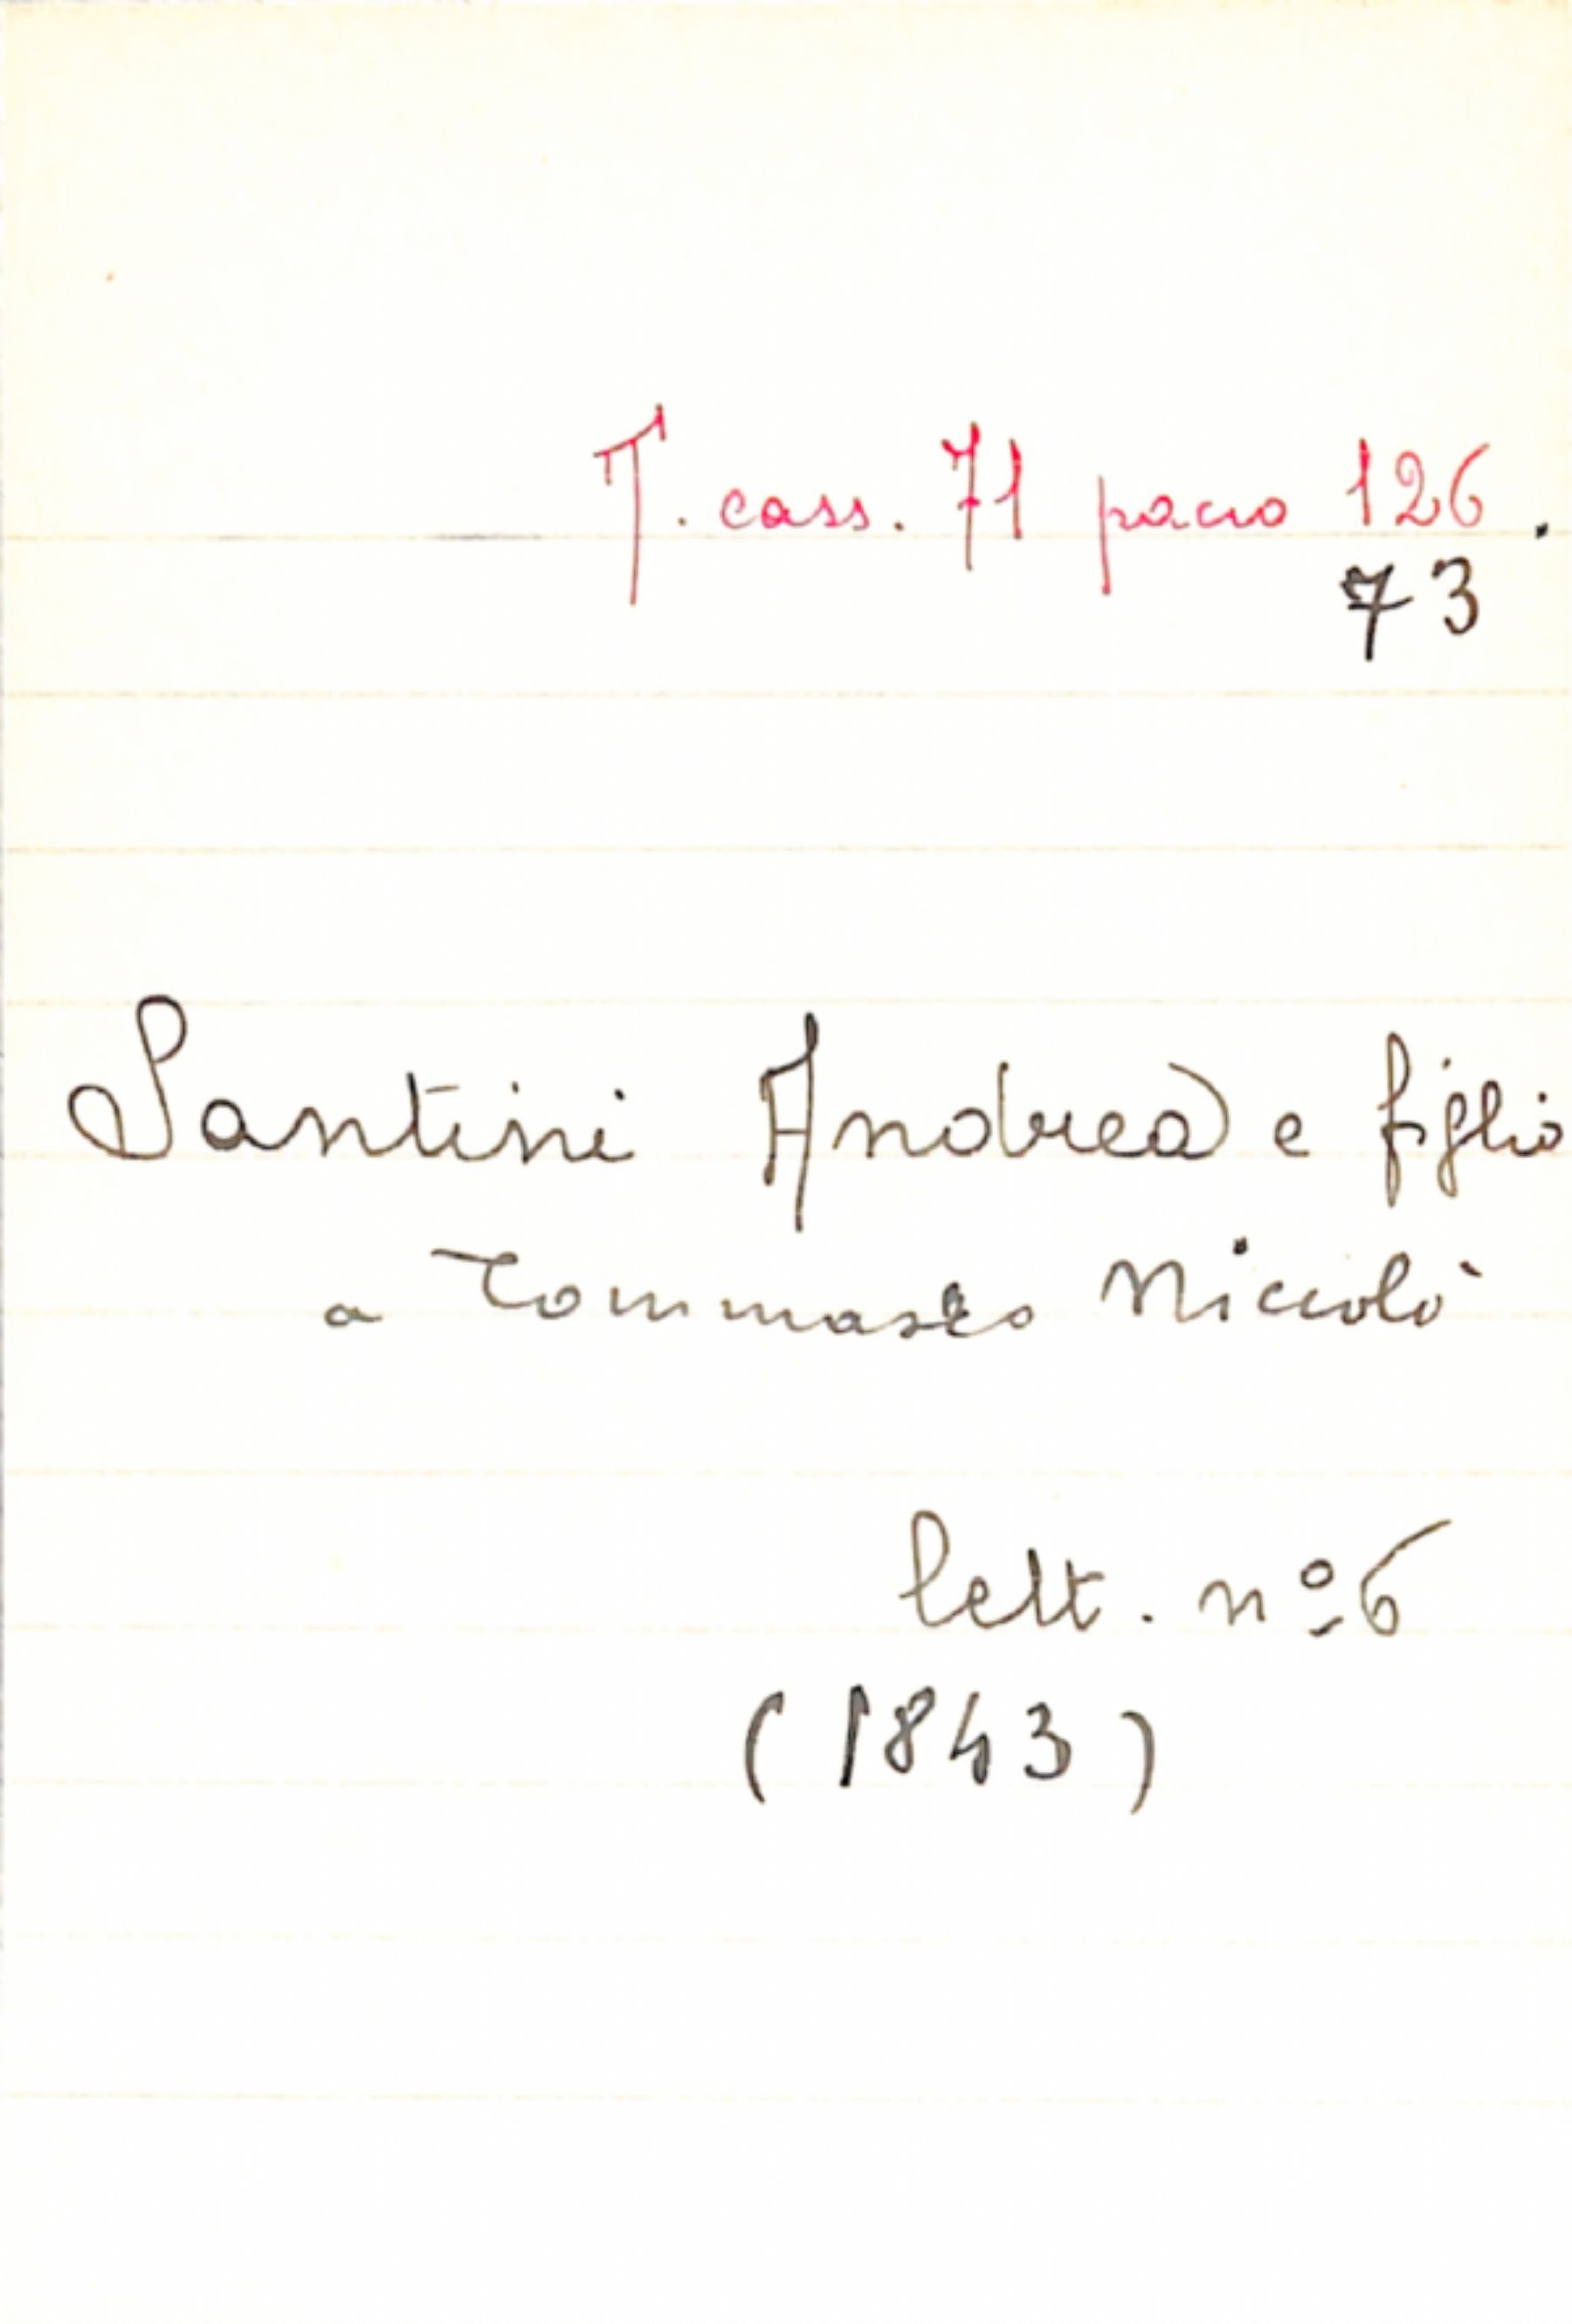 T. cass. 71 pacco 126.
73
Santini Andrea e figlio
a Tommaseo Niccolò
lett. nº 6
(1843)